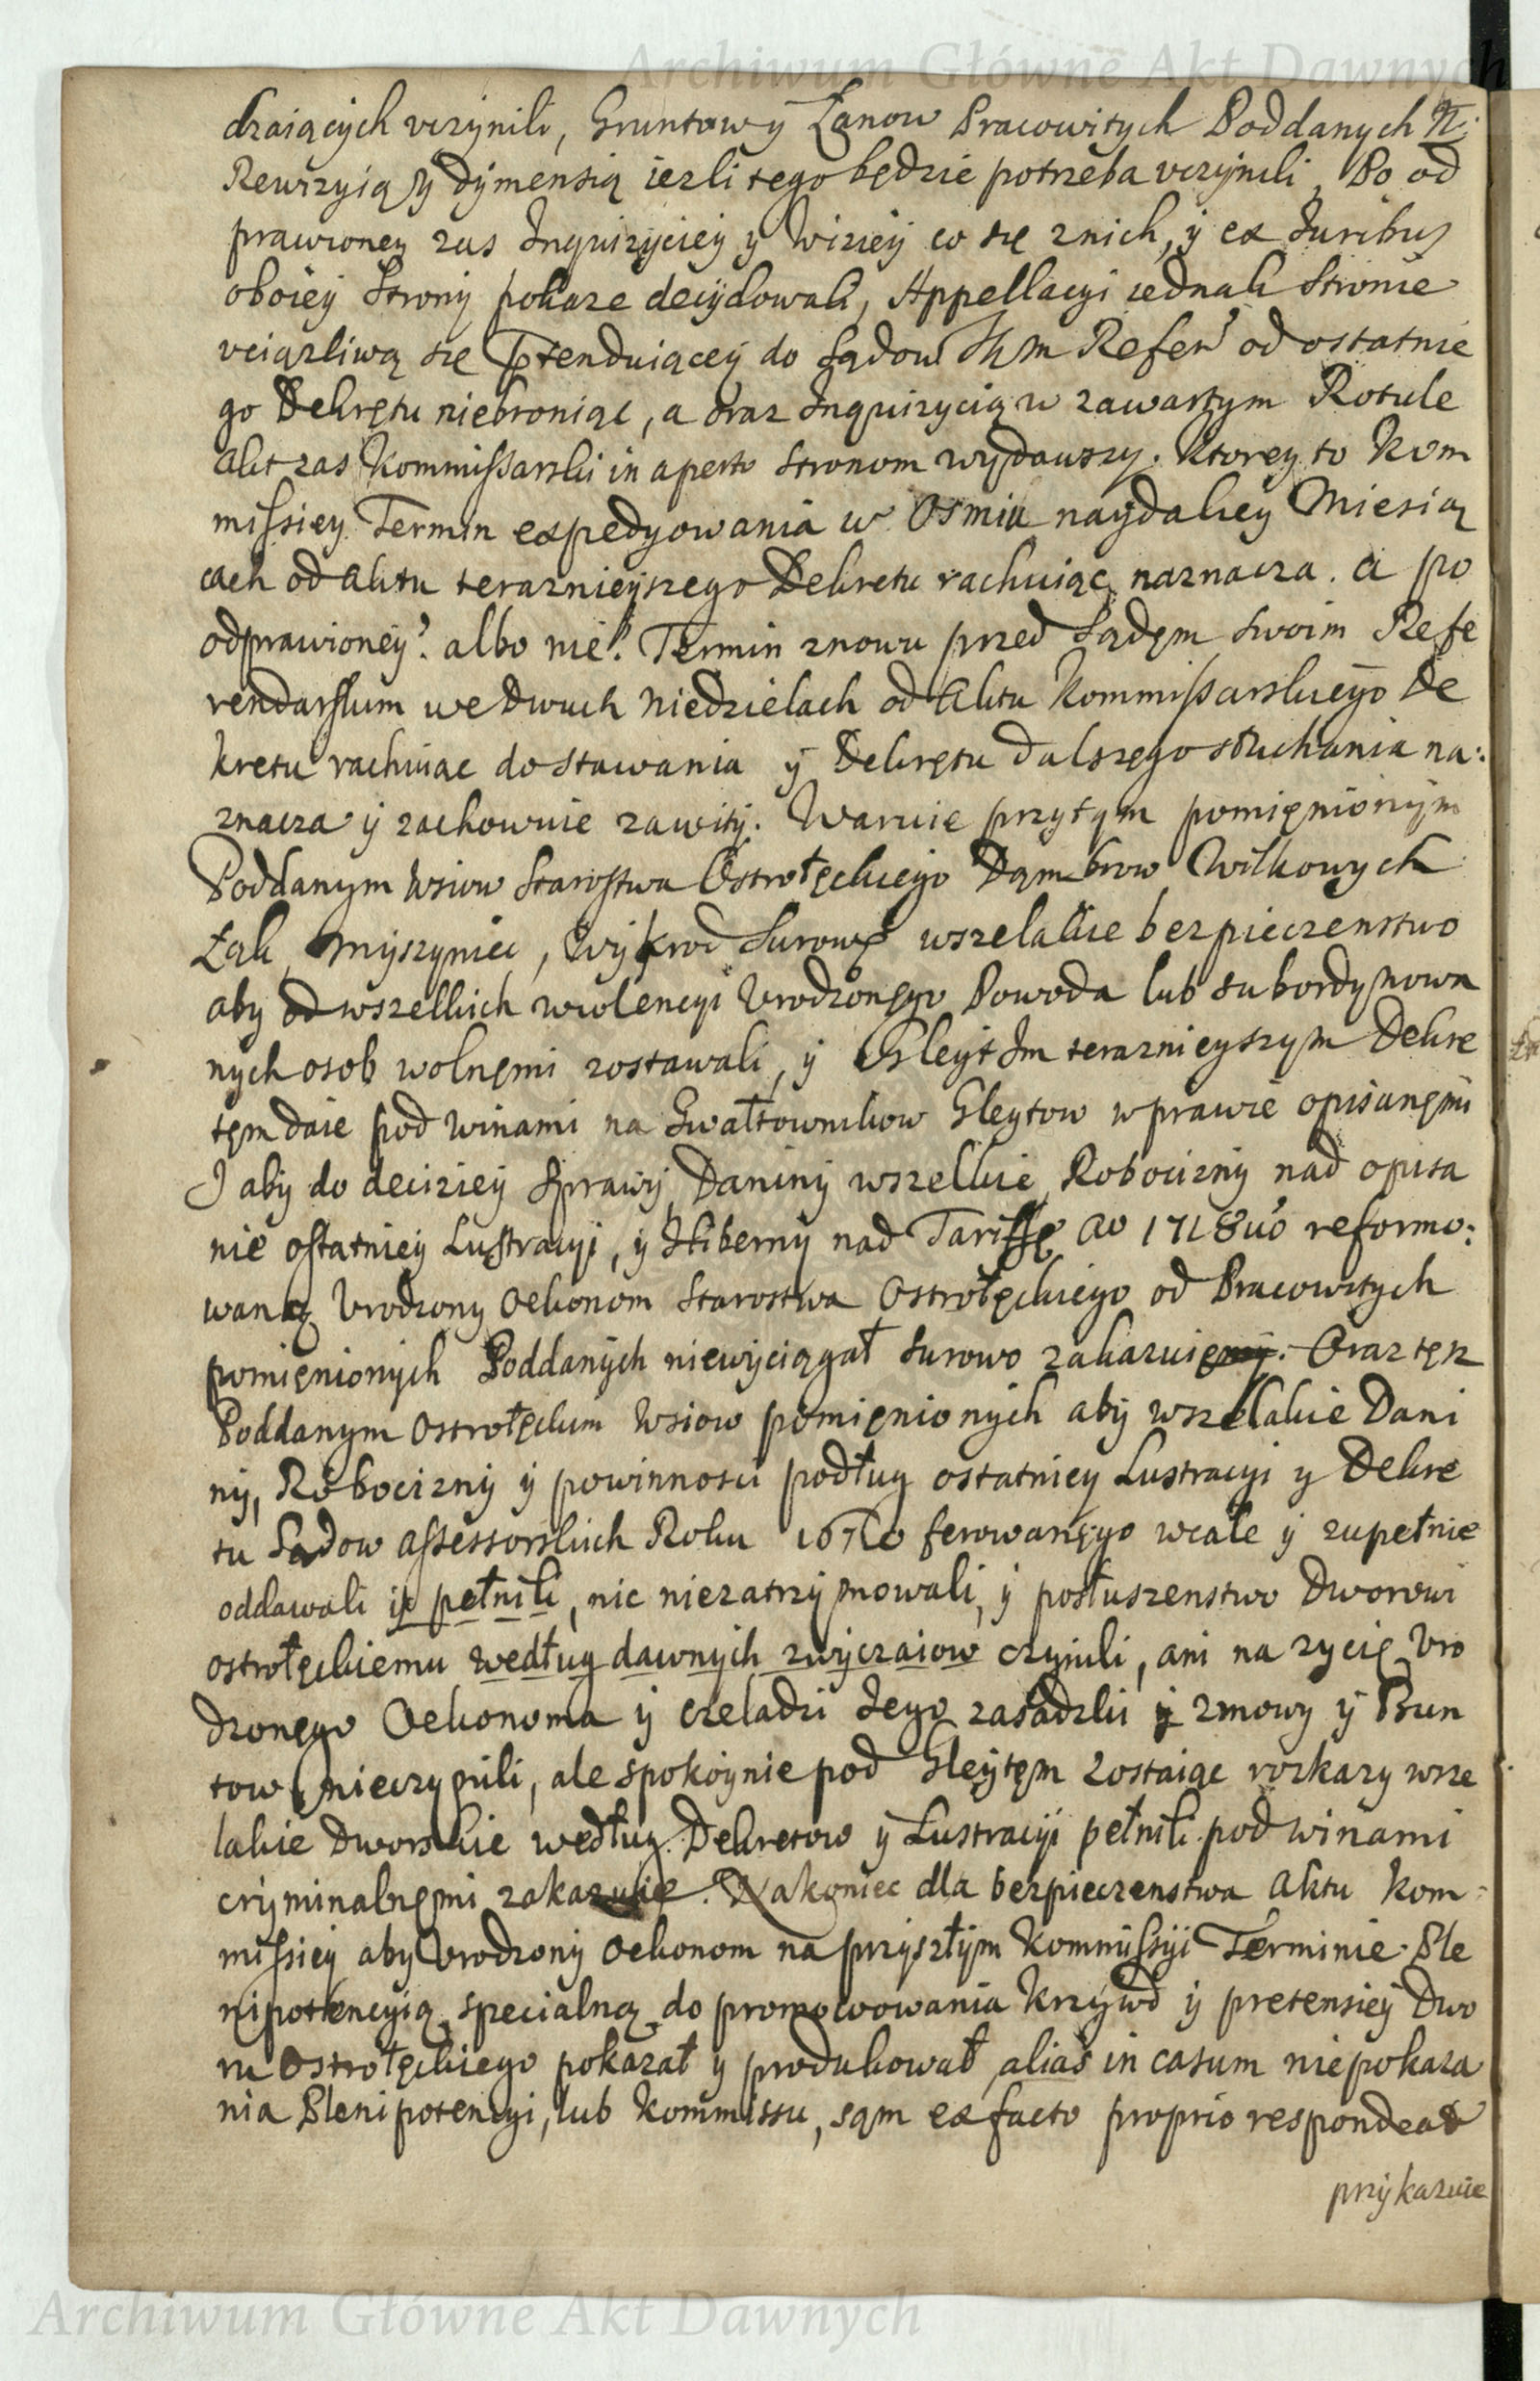 Archiwum Główne Akt Dawnych
dzaiących uczynili, Gruntow y Łanow Pracowitych Poddanych
Rewizyią y dymensią iezli tego będzie potrzeba uczynili, Po od
prawioney zas Inquizyciey y Wiziey co się z nich, y ex Juribus
oboiey Strony pokaze decydowali, Appellacyi iednak Stronie
uciązliwą się prętenduiącey do Sądow Refer od ostatnie
go Dekrętu niebroniąc, a oraz Inquizycią w zawartym Rotule
akt zas Kommissarski in aperto Stronom wydawszy. Ktorey to Kom
missiey Termin expedyowania w Osmiu naydaley Miesią
cach od aktu teraznieyszego Dekretu rachuiąc naznacza. a po
odprawioney? albo nie? Termin znowu przed Sądęm swoim Refe
rendarskim we dwuch Niedzielach od Aktu Kommissarskiego De
kretu rachuiąc do stawania y Dekrętu dalszęgo słuchania na:
znacza y zachowuie zawity. Waruie przytym pomięnionym
Poddanym wsiow Starostwa Ostrołęckiego Dąmbrow Wilkowych
Łąk, Myszyniec, Wykrod Surowe wszelakie bezpieczenstwo
aby od wszelkich wiolencyi Urodzonęgo Powoda lub subordynowa
nych osob wolnęmi zostawali, y Gleyt Im teraznieyszym Dekre
tęm daie pod winami na Gwałtownikow Gleytow w prawie opisanęmi
I aby do deciziey Sprawy Daniny wszelkie, Robocizny nad opisa
nie ostatniey Lustracyi, y Hiberny nad Tariffę Ao 1718vo reformo:
waną Urodzony Oekonom Starostwa Ostrołęckiego od Pracowitych
pomięnionych Poddanych niewyciągał surowo zakazuie. Oraz tęsz
Poddanym Ostrołęckim Wsiow pomięnionych aby wszelakie Dani
ny, Robocizny y powinnosci podług ostatniey Lustracyi y Dekre
tu Sądow assessorskich Roku ferowanęgo wcale y zupełnie
oddawali y pełnili, nic niezatrzymowali, y posłuszenstwo Dworowi
ostrołęckiemu według dawnych zwyczaiow czynili, ani na zycię Uro
dzonęgo Oekonoma y czeladzi Jego zasadzki y zmowy y Bun
tow nieczynili, ale spokoynie pod Gleytęm zostaiąc rozkazy wsze
lakie Dworskie według Dekretow y Lustracyi pełnili pod winami
cryminalnęmi zakazuie. Nakoniec dla bezpieczenstwa aktu Kom
missiey aby Urodzony Oekonom na przyszłym Kommissyi Terminie Ple
nipotencyią specialną do promowowania Krzywd y pretensiey Dwo
ru Ostrołęckiego pokazał y produkował alias in casum niepokaza
nia Plenipotencyi, lub Kommissu, sąm ex facto proprio respondeat
przykazuie
Archiwum Główne Akt Dawnych